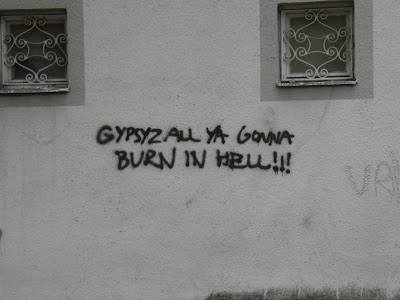 GYPSYZ ALL YA GONNA
BURN IN HELL!!!